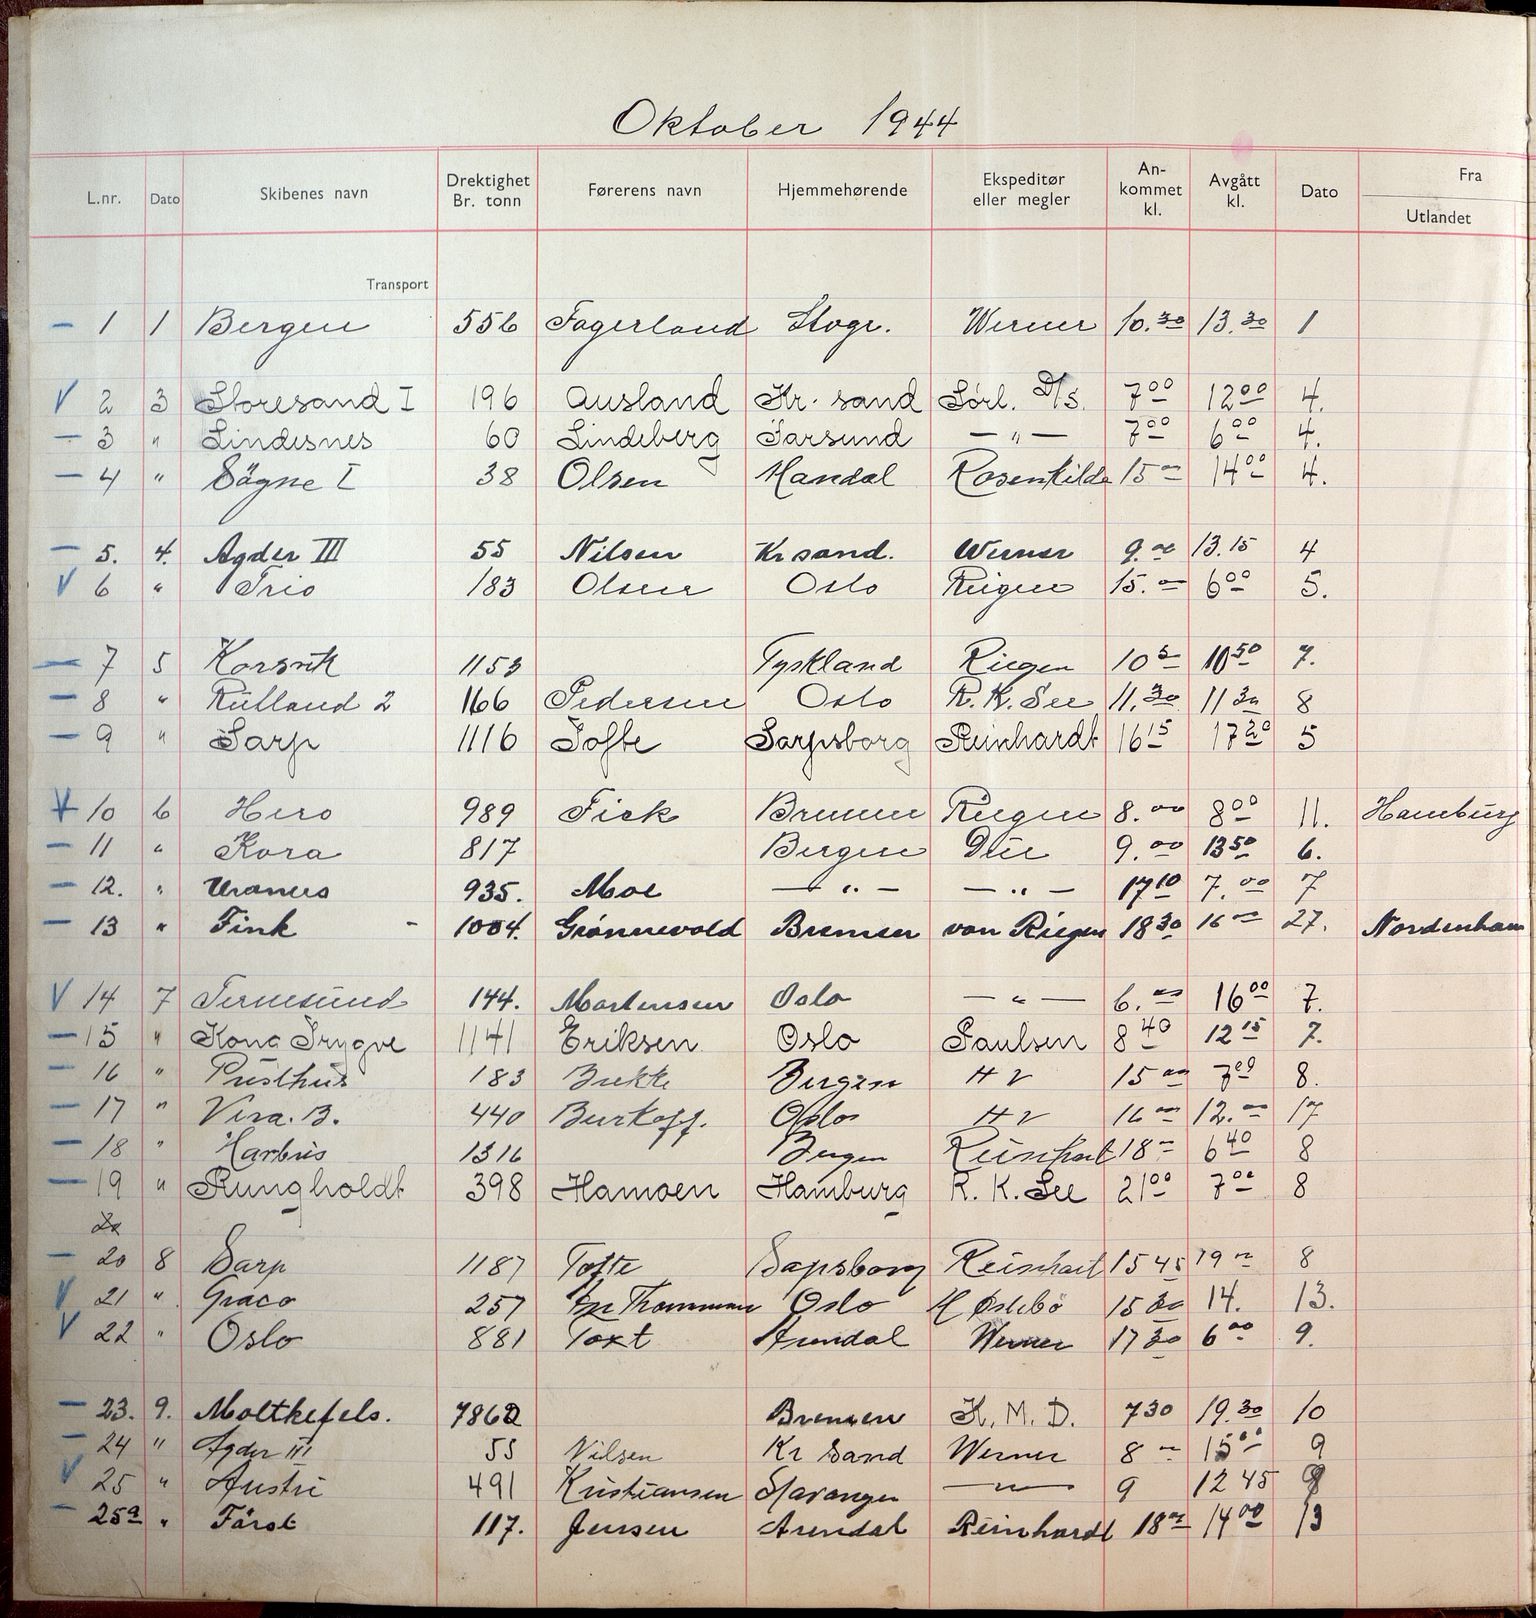 Oktober 1944
L.nr. Dato Skibenes navn Drektighet Br. tonn Førerens navn Hjemmehørende Ekspeditør eller megler An-kommet kl. Avgått kl. Dato Fra Utlandet
Transport
— 1 1 Bergen 556 Fagerland Stvgr. Werner 10.30 13.30 1
V 2 3 Storesand I 196 Ausland Kr. sand Sørl. D/S. 7 00 12 00 4.
— 3 " Lindesnes 60 Lindeberg Farsund — " — 7 00 6 00 4.
— 4 " Søgne I 38 Olsen Mandal Rosenkilde 15 00 14 00 4.
— 5. 4. Agder III 55 Nilsen Kr sand. Werner 9. 00 13.15 4
V 6 " Trio 183 Olsen Oslo Riegen 15. 00 6 00 5.
— 7 5 Korsvik 1153 Tyskland Riegen 10 50 7.
— 8 " Rutland 2 166 Pedersen Oslo R. K. See 11.30 11 30 8
— 9 " Sarp 1116 Tofte Sarpsborg Reinhardt 16 15 17 20 5
V 10 6 Hero 989 Fick Bremen Riegen 8. 00 8 00 11. Hamburg
— 11 " Kora 817 Bergen Due 9. 00 13 50 6.
— 12. " Uranus 935. Moe — " — — " — 17 10 7. 00 7
— 13 " Fink - 1004. Grönnevold Bremen van Riegen 18 30 16 00 27. Nordenham
V 14 7 Ternesund 144. Mortensen Oslo — " — 6. 00 16 00 7.
— 15 " Kong Trygve 1141 Eriksen Oslo Paulsen 8 40 12 15 7.
— 16 " Pusthus 183 Bekke Bergen H V 15 00 7 00 8.
— 17 " Vira. B. 440 Burkoff. Oslo H V 16 00 12. 00 17
— 18 " 1316 Bergen Reinhart 18 — 6 40 8
— 19 " Rungholdt 398 Hamoen Hamburg R. K. See 21 00 7 00 8
— 20 8 Sarp 1187 Tofte Sapsborg Reinhart 15 45 19 00 8
V 21 " Graco 257 Thommesen Oslo M Oslebö 15 30 14. 13.
V 22 " Oslo 881 Toxt Arendal Werner 17 30 6 00 9.
— 23. 9. Moltkefels. 7862 Bremen K. M. D. 7 30 19.30 10
— 24 " Agder III 55 Nilsen Kr Sand Werner 8 — 15 00 9
V 25 " Austri 491 Kristiansen Stavanger — " — 9 12 45 9
— 25a " Först 117. Jensen Arendal Reinhardt 18 00 14 00 13